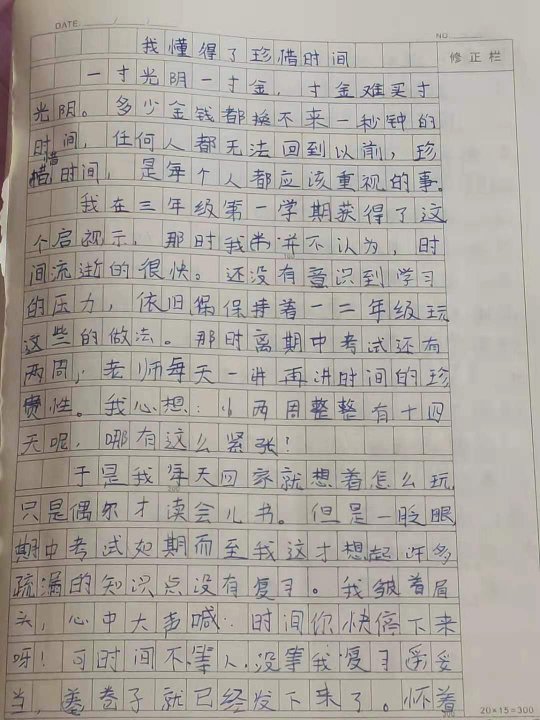 DATE    /    /
NO.
我懂得了珍惜时间
修正栏
一寸光阴一寸金，寸金难买寸
光阴。多少金钱都换不来一秒钟的
时间，任何人都无法回到以前，珍
惜时间，是每个人都应该重视的事。
我在三年级第一学期获得了这
个启示，那时我并不认为，时
100
间流逝的很快。还没有意识到学习
的压力，依旧保持着一二年级玩
这些的做法。那时离期中考试还有
两周，老师每天一讲再讲时间的珍
贵性。我心想：两周整整有十四
天呢，哪有这么紧张！
于是我每天回家就想着怎么玩
200
只是偶尔才读会儿书。但是一眨眼
期中考试如期而至我这才想起许多
疏漏的知识点没有复习。我皱着眉
头，心中大声喊：时间你快停下来
呀！可时间不等人，没等我复习妥
当，卷子就已经发下来了。怀着
300
20×15=300